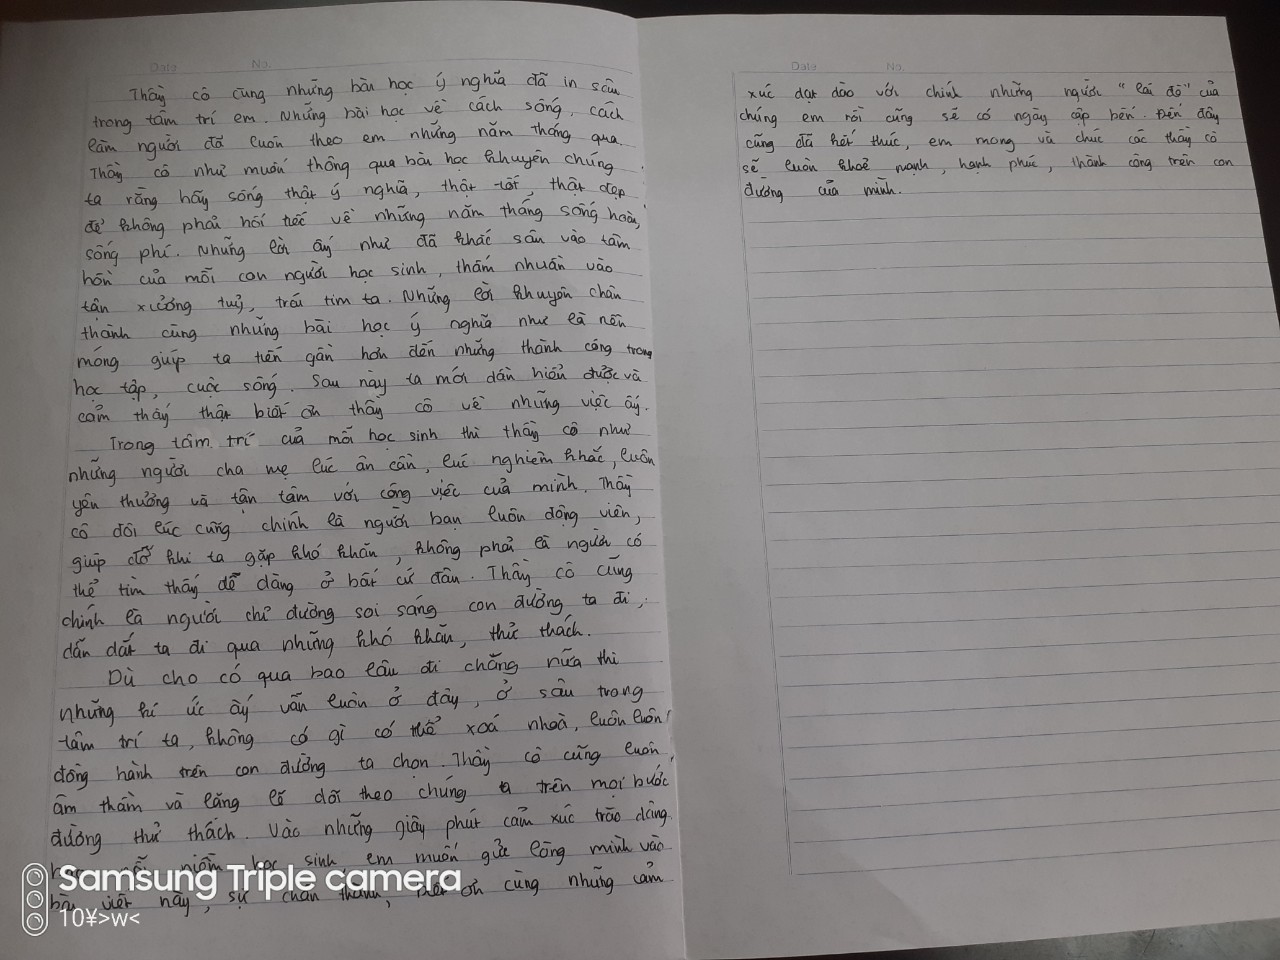 Date No.
Thầy cô cùng những bài học ý nghĩa đã in sâu
trong tâm trí em. Những bài học về cách sống, cách
làm người đã luôn theo em những năm tháng qua.
Thầy cô như muốn thông qua bài học khuyên chúng
ta rằng hãy sống thật ý nghĩa, thật tốt, thật đẹp
để không phải hối tiếc về những năm tháng sống hoài,
sống phí. Những lời ấy như đã khắc sâu vào tâm
hồn của mỗi con người học sinh, thấm nhuần vào
tận xương tuỷ, trái tim ta. Những lời khuyên chân
thành cùng những bài học ý nghĩa như là nền
móng giúp ta tiến gần hơn đến những thành công trong
học tập, cuộc sống. Sau này ta mới dần hiểu được và
cảm thấy thật biết ơn thầy cô về những việc ấy.
Trong tâm trí của mỗi học sinh thì thầy cô như
những người cha mẹ lúc ân cần, lúc nghiêm khắc, luôn
yêu thương và tận tâm với công việc của mình. Thầy
cô đôi lúc cũng chính là người bạn luôn động viên,
giúp đỡ khi ta gặp khó khăn, không phải là người có
thể tìm thấy dễ dàng ở bất cứ đâu. Thầy cô cũng
chính là người chỉ đường soi sáng con đường ta đi,
dẫn dắt ta đi qua những khó khăn, thử thách.
Dù cho có qua bao lâu đi chăng nữa thì
những kí ức ấy vẫn luôn ở đây, ở sâu trong
tâm trí ta, không có gì có thể xoá nhoà, luôn luôn
đồng hành trên con đường ta chọn. Thầy cô cũng luôn
âm thầm và lặng lẽ dõi theo chúng ta trên mọi bước
đường thử thách. Vào những giây phút cảm xúc trào dâng
niềm học sinh em muốn gửi lòng mình vào
bài viết này, sự chân thành, biết ơn cùng những cảm
Samsung Triple camera
10¥>w<
Date No.
xúc dạt dào với chính những người "lái đò" của
chúng em rồi cũng sẽ có ngày cập bến. Đến đây
cũng đã kết thúc, em mong và chúc các thầy cô
sẽ luôn khoẻ mạnh, hạnh phúc, thành công trên con
đường của mình.